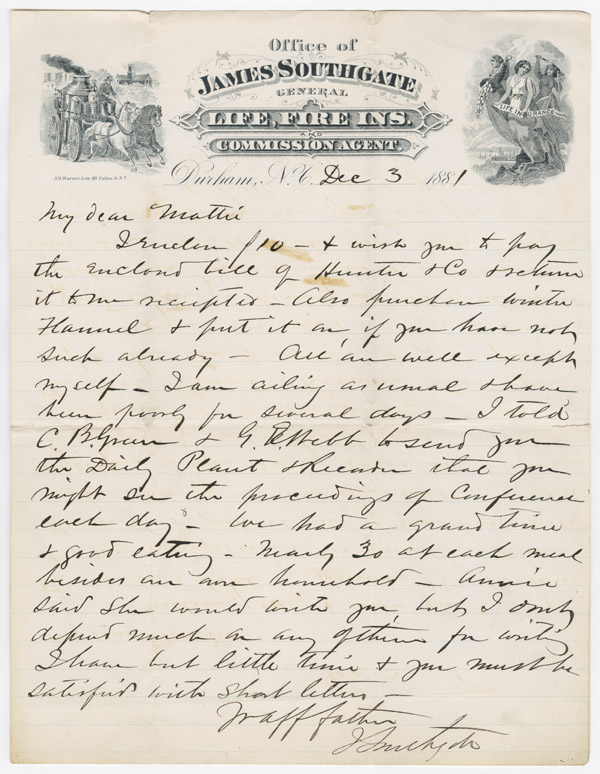 Office of
JAMES SOUTHGATE
GENERAL
LIFE, FIRE INS.
AND
COMMISSION AGENT.
LIFE INSURANCE
Durham, N.C. Dec 3 1881
My dear Mattie
I enclose $10 - & wish you to pay
the enclosed bill of Hunter & Co & return
it to me receipted - Also purchase winter
Flannel & put it on if you have not
such already - All are well except
myself - I am ailing as usual & have
been poorly for several days - I told
C. B. Green & G. Webb to send you
the Daily Plant & Recorder that you
might see the proceedings of Conference
each day - We had a grand time
& good eating - Nearly 30 at each meal
besides our own household - Annie
said she would write you, but I don't
depend much on any of them for writing
I have but little time & you must be
satisfied with short letters -
Yr aff father
J Southgate